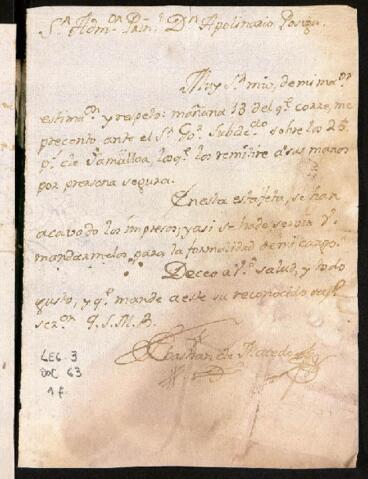 Sr Admor Prinl Dn Apolinario
Muy Sr mio, de mi maor
estimaon y respeto: mañana 13 del qe corre, me
precento ante el Sr Gor Subdedo sobre los 25
ps de los qe los remitire a sus manos
por prersona segura.
En esta estafeta, se han
acavado los impresos, y asi se ha de servir V.
mandarmelos, para la formalidad de mi cargo.
Deceo a V. salud, y todo
gusto, y qe mande a este su reconocido
seror Q. S. M. B.
Sebastian de Macedo
LEG. 3
DOC 63
1 f.